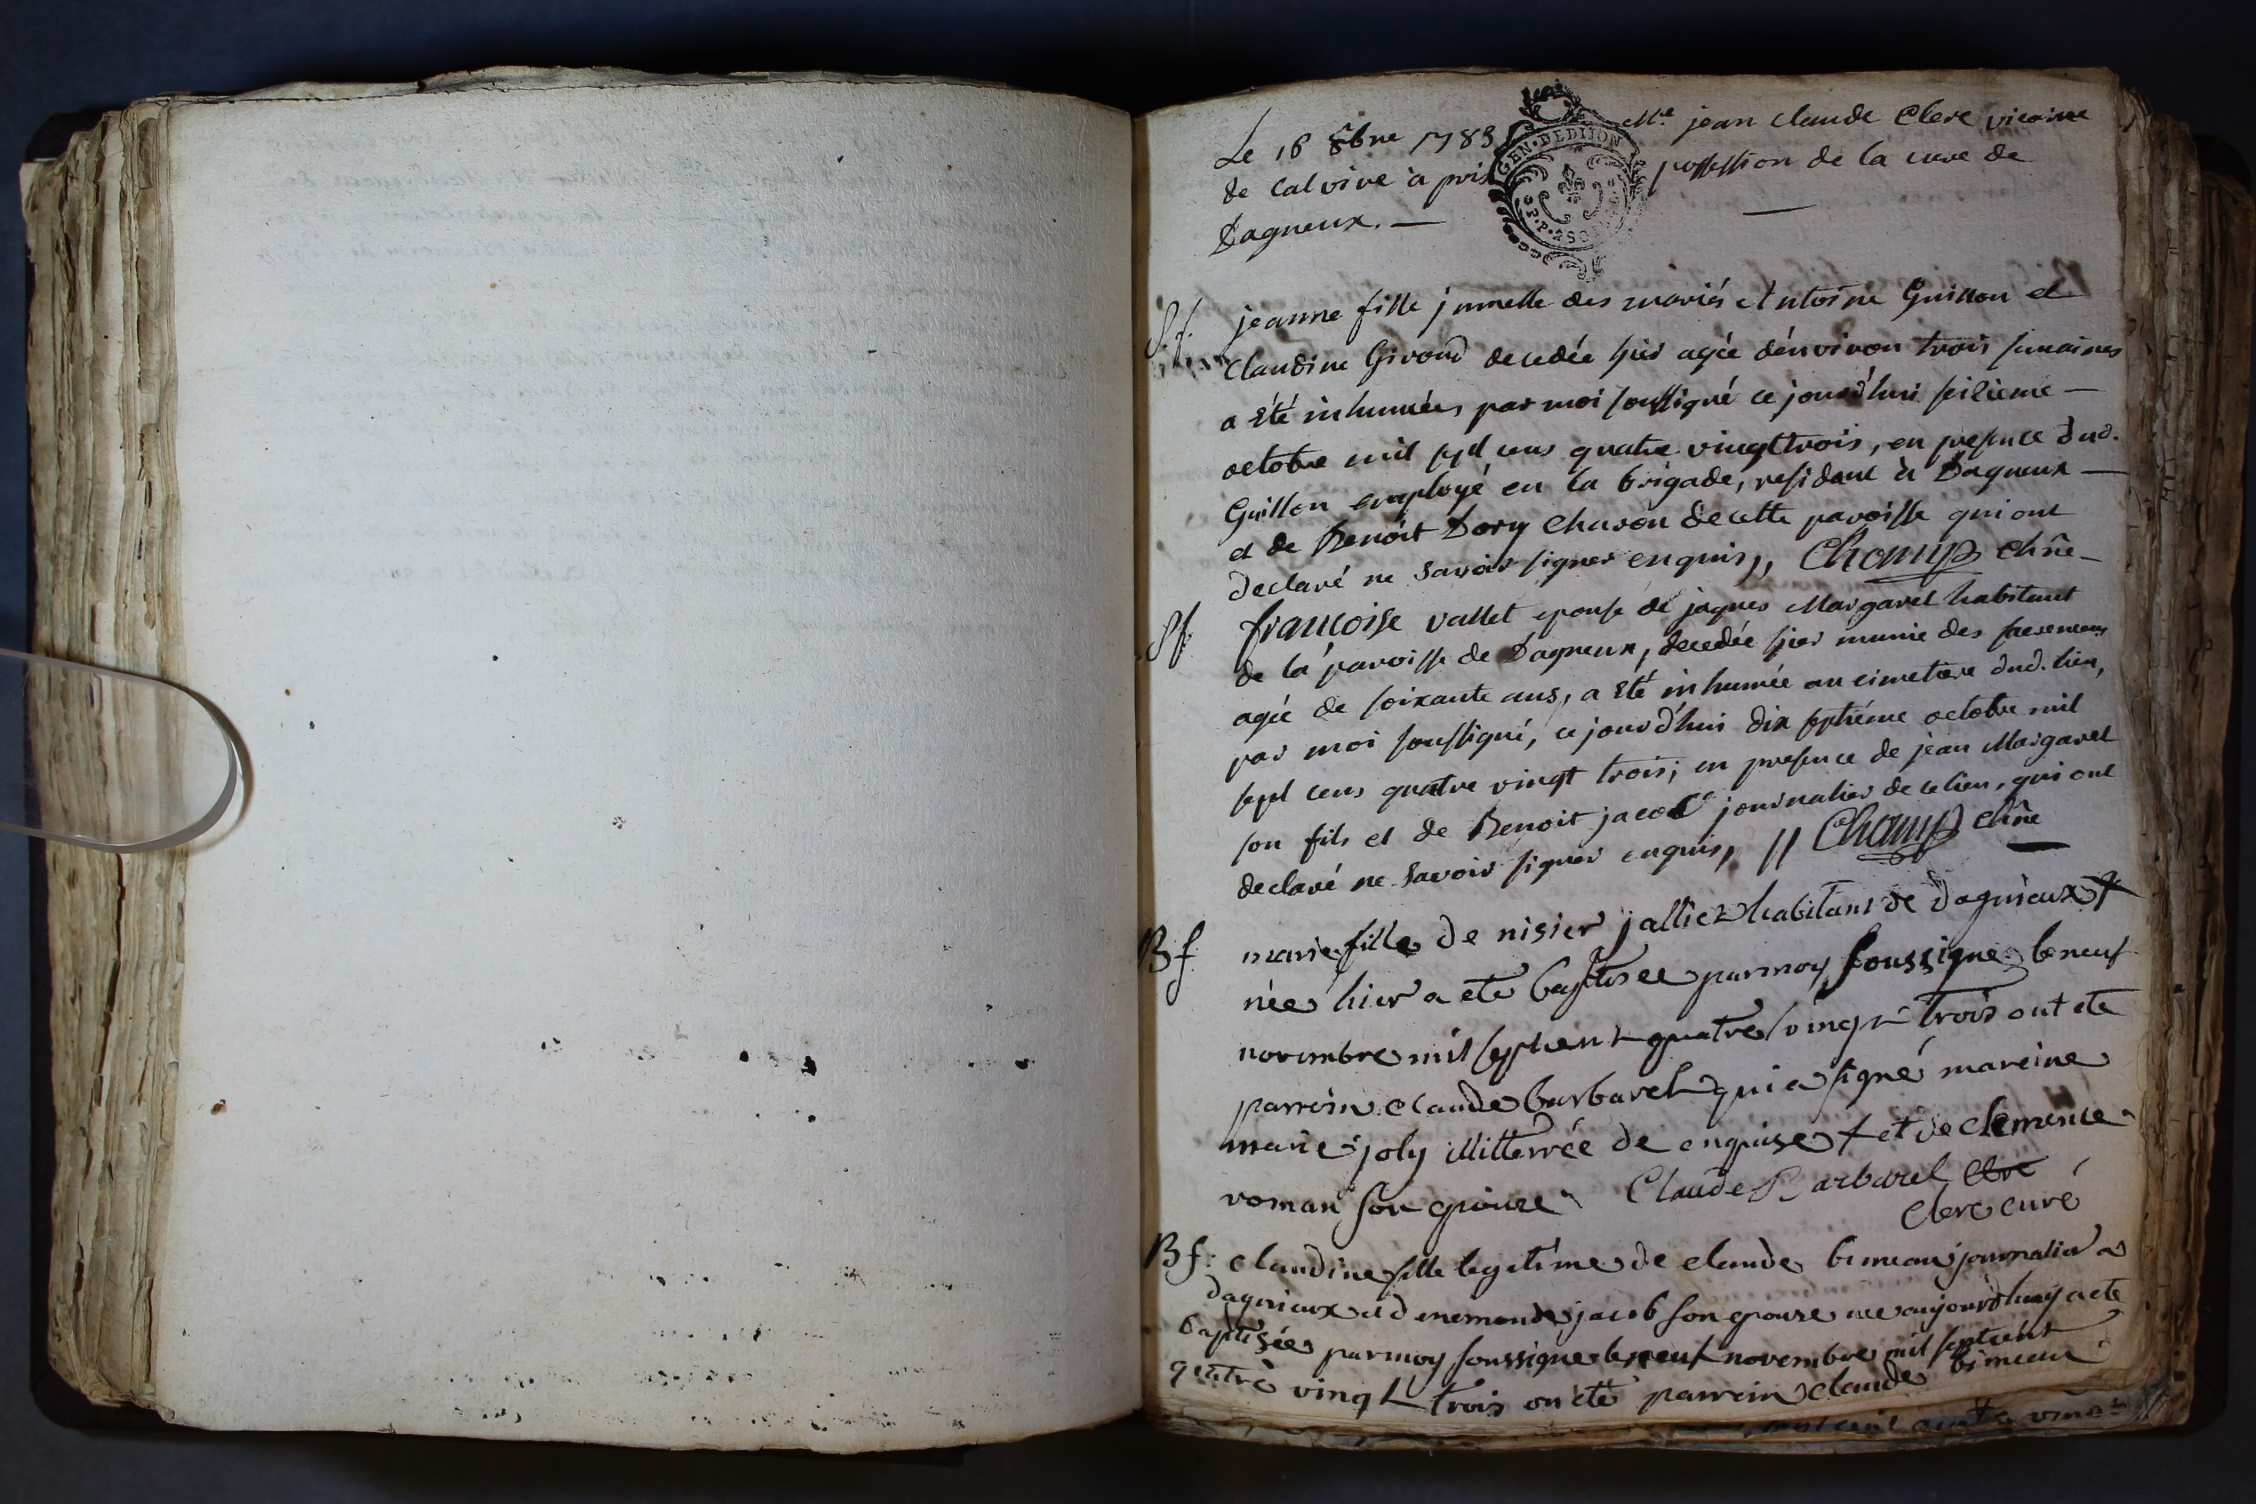 Le 16 8bre 1783 Mre jean Claude Clerc vicaire
de Calvire à pris possession de la cure de
Dagneux. —
GEN·DE DIJON
S. f. jeanne fille jumelle des mariés Antoine Guillon et
Claudine Girond decedée hier agée d'environ trois semaines
a été inhumée, par moi soussigné ce jourd'hui seizieme —
octobre mil sept cens quatre vingt trois, en presence dud.
Guillon employé en la brigade, residant à Dagneux —
et de Benoit Dory charon de cette paroisse qui ont
declaré ne savoir signer enquis,, Champ chñe —
Sf. francoise vallet epouse de jaques Margaret habitant
de la paroisse de Dagneux, decedée hier munie des sacremens
agée de soixante ans, a été inhumée au cimetiere dud. lieu,
par moi soussigné, ce jourd'hui dix septiéme octobre mil
sept cens quatre vingt trois; en presence de jean Margaret
son fils et de Benoit jacob journalier de ce lieu, qui ont
declaré ne savoir signer enquis, // Champ chñe
Bf marie fille de nisier jalliez habitant de dagnieux +
née hier a eté baptisee par moy soussigné le neuf
novembre mil sept cent quatre vingt trois ont ete
parrein claude barbaret qui a signé mareine
marie joly illitterrée de enquise + et de clemence
roman son epouse Claude Barbaret
Clerc curé
Bf: claudine fille legitime de claude bimeau journalier a
dagnieux et d enemonde jacob son epouse née aujourdhuy a ete
baptisée par moy soussigné le neuf novembre mil sept cent
quatre vingt trois on été parrein claude bimeau